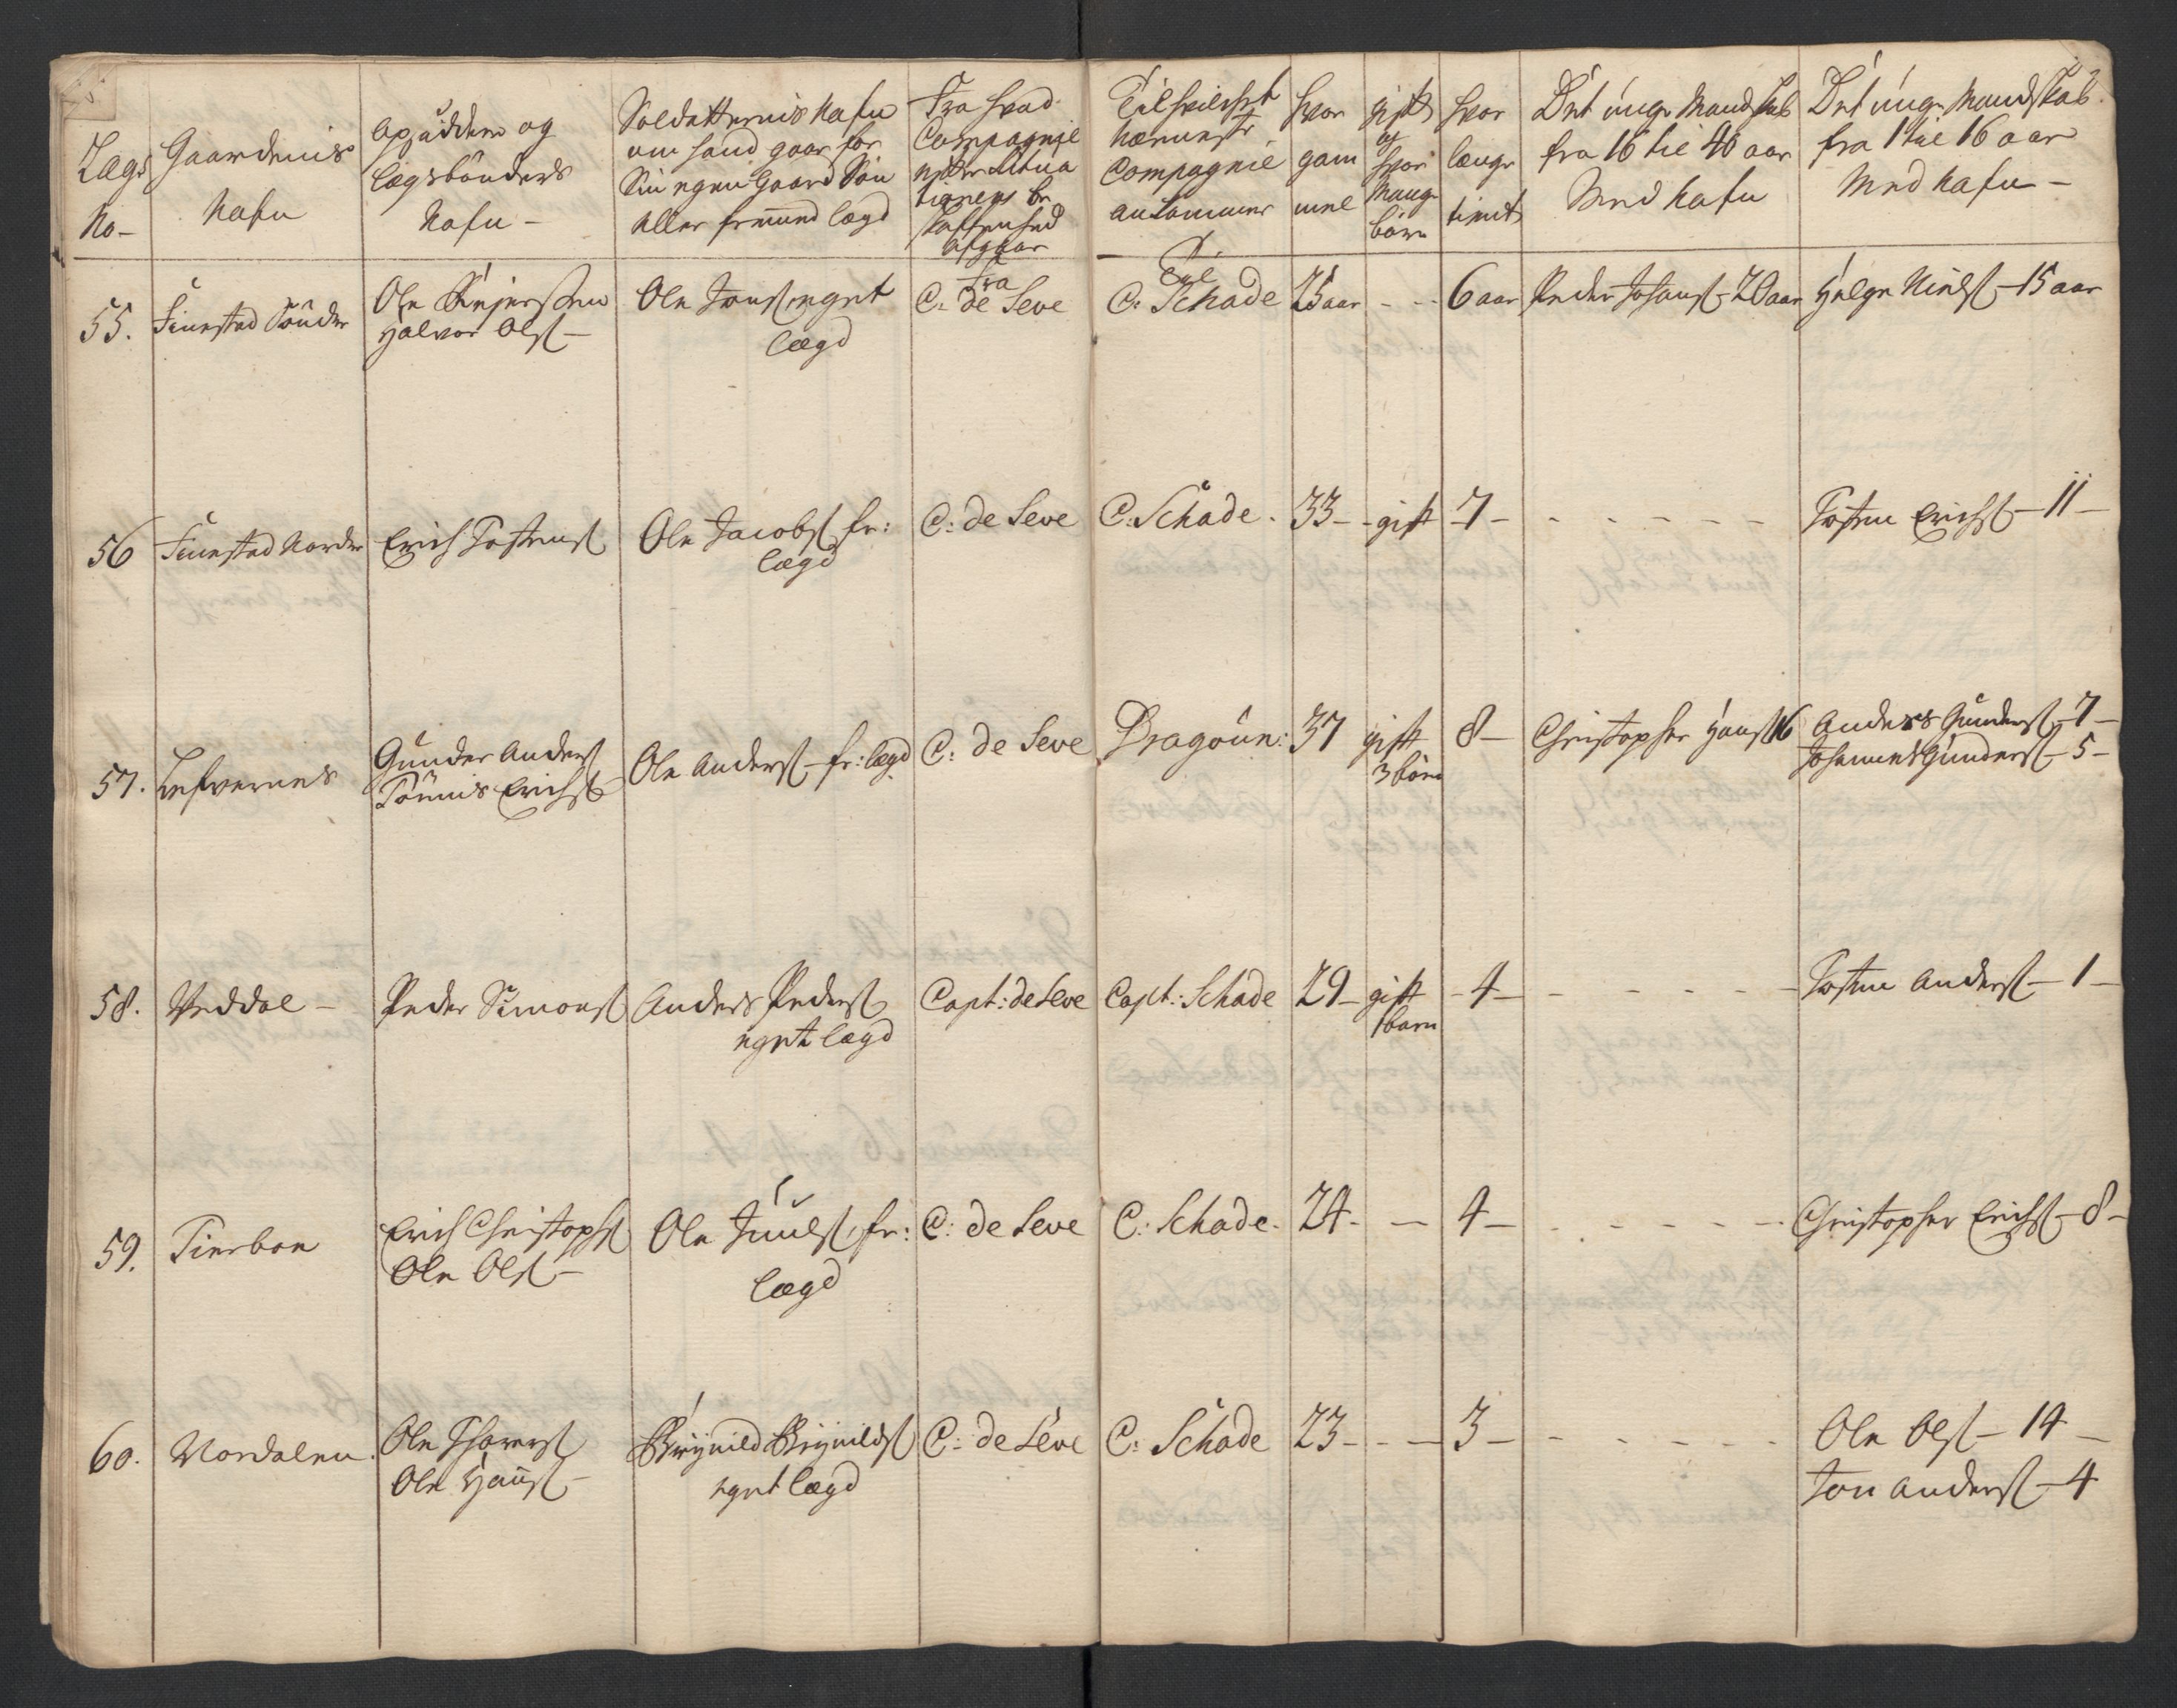 Lægs No–
Gaardenis Nafn
opsidderne og Lægsbønders Nafn –
Soldatternis Nafn om hand gaar for Sin egen Gaard Søn eller fremmed lægd
Fra hvad Compagnie efter Situationens be skaffenhed afgaar
Til hvilchet nærmeste Compagnie ankommer
hvor gam mel
gift og hvor mange børn
hvor længe tient
Det unge Mandskab fra 16 til 40 aar Med Nafn
Det unge Mandskab fra 1 til 16 aar Med Nafn –
55. Finestad Sønder
Ole Halvor Olss –
Ole Jonss eget lægd
fra C: de Seve
Til C: Schade
25 aar - - 6 aar
Peder Johanss – 20 aar
Helge Nielss – 15 aar
56 Finestad Norder
Erich Tostenss
Ole Jacobss fr: lægd
C: de Seve
C: Schade - 33 – - gift - 7 –
- - - - - -
Tosten Erichss – 11 –
57. Lefvernes
Gunder Anderss
Tønnis Erichss
Ole Anderss – fr: lægd
C: de Seve
Dragoun: 37 gift 3 børn 8 –
Christopher Hanss 16
Anders Gunderss – 7 –
Johannes Gunderss – 5 –
58. Veddal –
Peder Simonss
Anders Pederss eget lægd
Capt: de Seve
Capt: Schade 29 – gift 1 barn - 4 –
- - - - -
Tosten Anderss – 1 –
59. Tierboe
Erich Christophss
Ole Olss –
Ole Juulss fr: lægd
C: de Seve
C: Schade - 24 - – 4 –
- - - - - -
Christopher Erichss – 8 –
60. Nordalen.
Ole Thorerss
Ole Hanss –
Brynild Brynildss eget lægd
C: de Seve
C: Schade 23 – - – 3 –
- - - - - -
Ole Olss – 14 –
Jon Anderss – 4